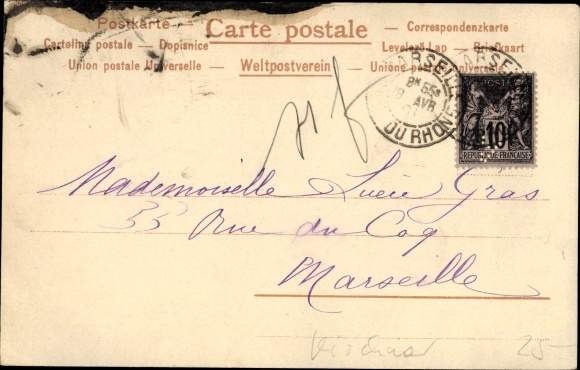 Postkarte — Carte postale — Correspondenzkarte
Cartolina postale — Dopisnice Levelező-Lap — Brefkaart
Union postale Universelle — Weltpostverein — Unione postale universale
MARSEILLE
8E 55
AVR
DU RHONE
POSTE
10
REPUBLIQUE FRANÇAISE
Mademoiselle Lucie Gras
33 Rue du Coq
Marseille
25-